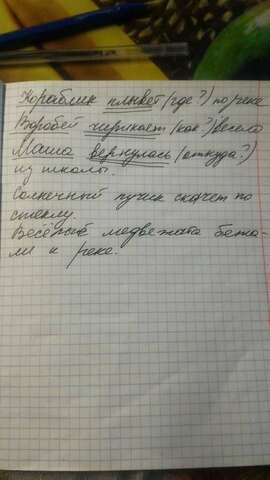 Кораблик плывёт (где?) по реке
Воробей чирикает (как?) весело
Маша вернулась (откуда?)
из школы.
Солнечный лучик скачет по
стеклу.
Весёлые медвежата бежа-
ли к реке.